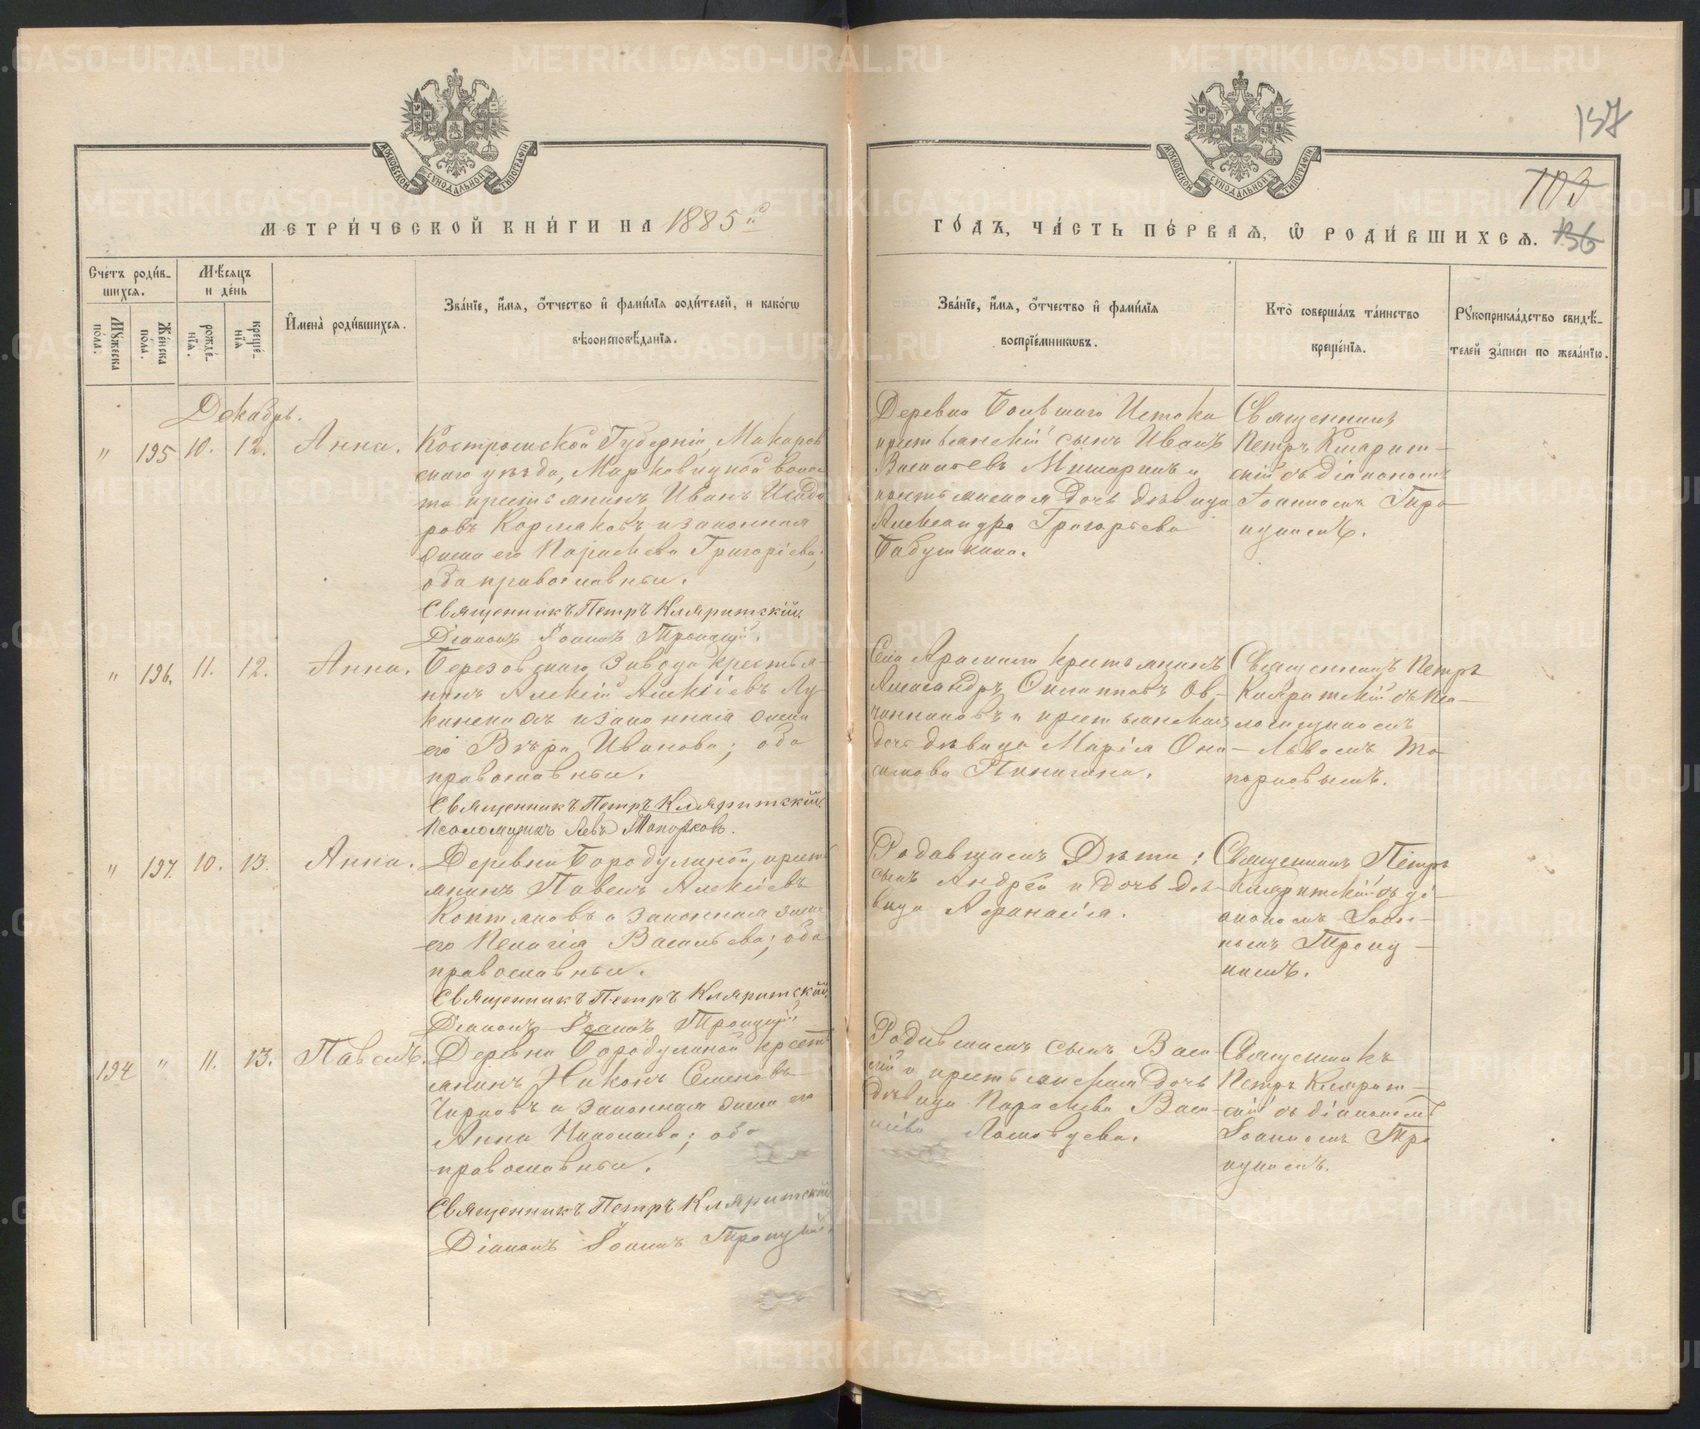 МЕТРИ́ЧЕСКОЙ КНИ́ГИ НА 1885 й
ГО́ДЪ, ЧА́СТЬ ПЕ́РВАЯ, Ѡ РОДИ́ВШИХСЯ.
137
103
136
Сче́тъ роди́в-
шихся.
Мѣ́сяцъ
и де́нь
Му́жеска
по́ла.
Же́нска
по́ла.
рожде́-
нїя.
креще́-
нїя
Имена̀ роди́вшихся.
Зва́нїе, и́мя, о́тчество и҆ фами́лїя роди́телей, и како́гѡ
вѣроисповѣ́данїя.
Зва́нїе, и́мя, о́тчество и҆ фами́лїя
воспрїе́мниковъ.
Кто̀ соверша́лъ та́инство
креще́нїя.
Рꙋкоприкла́дство свидѣ́-
телей за́писи по жела́нїю.
Декабрь.
" 195 10. 12. Анна.
Костромской Губерніи, Макарьев
скаго уѣзда, волос
ти крестьянинъ Иванъ Исидо
ровъ Кормаковъ и законная
жена его Параскева Григоріева;
оба православные.
Священникъ Петръ Кляритскій.
Діаконъ Іоаннъ Троицкій.
Деревни Большаго Истока
крестьянскій сынъ Иванъ
Васильевъ Мишаринъ и
крестьянская дочь дѣвица
Александра Григорьева
Бабушкина.
Священникъ
Петръ Кларит-
скій съ діакономъ
Іоанномъ Тро
ицкимъ.
" 196. 11. 12. Анна.
Березовскаго Завода крестья-
нинъ Алексій Алексіевъ
и законная жена
его Вѣра Иванова; оба
православные.
Священникъ Петръ Кляритскій
Псаломщикъ Левъ Топорковъ.
Села Арамили крестьянинъ
Александръ Ов-
чинниковъ и крестьянская
дочь дѣвица Марія Они-
симова Пинигина.
Священникъ Петръ
Кляритскій съ Пса-
ломщикомъ
Львомъ То
порковымъ.
" 197. 10. 13. Анна.
Деревни Бородулиной, кресть
янинъ Павелъ Алексіевъ
Коптяковъ и законная жена
его Пелагія Васильева; оба
православные.
Священникъ Петръ Кляритскій
Діаконъ Іоаннъ Троицкій
Родившихъ Дѣти:
сынъ Андрей и дочь дѣ-
вица Афанасія.
Священникъ Петръ
Кляритскій съ ді-
акономъ Іоан-
номъ Троиц-
кимъ.
194 " 11. 13. Павелъ.
Деревни Бородулиной крест
янинъ Никонъ Семеновъ
Чирковъ и законная жена его
Анна Николаева; оба
православные.
Священникъ Петръ Кляритскій
Діаконъ Іоаннъ Троицкій.
Родившихъ сынъ Васи
лій и крестьянская дочь
дѣвица Параскева Васи-
льева
Священникъ
Петръ Кларит-
скій съ діакономъ
Іоанномъ Тро
ицкимъ.
METRIKI.GASO-URAL.RU